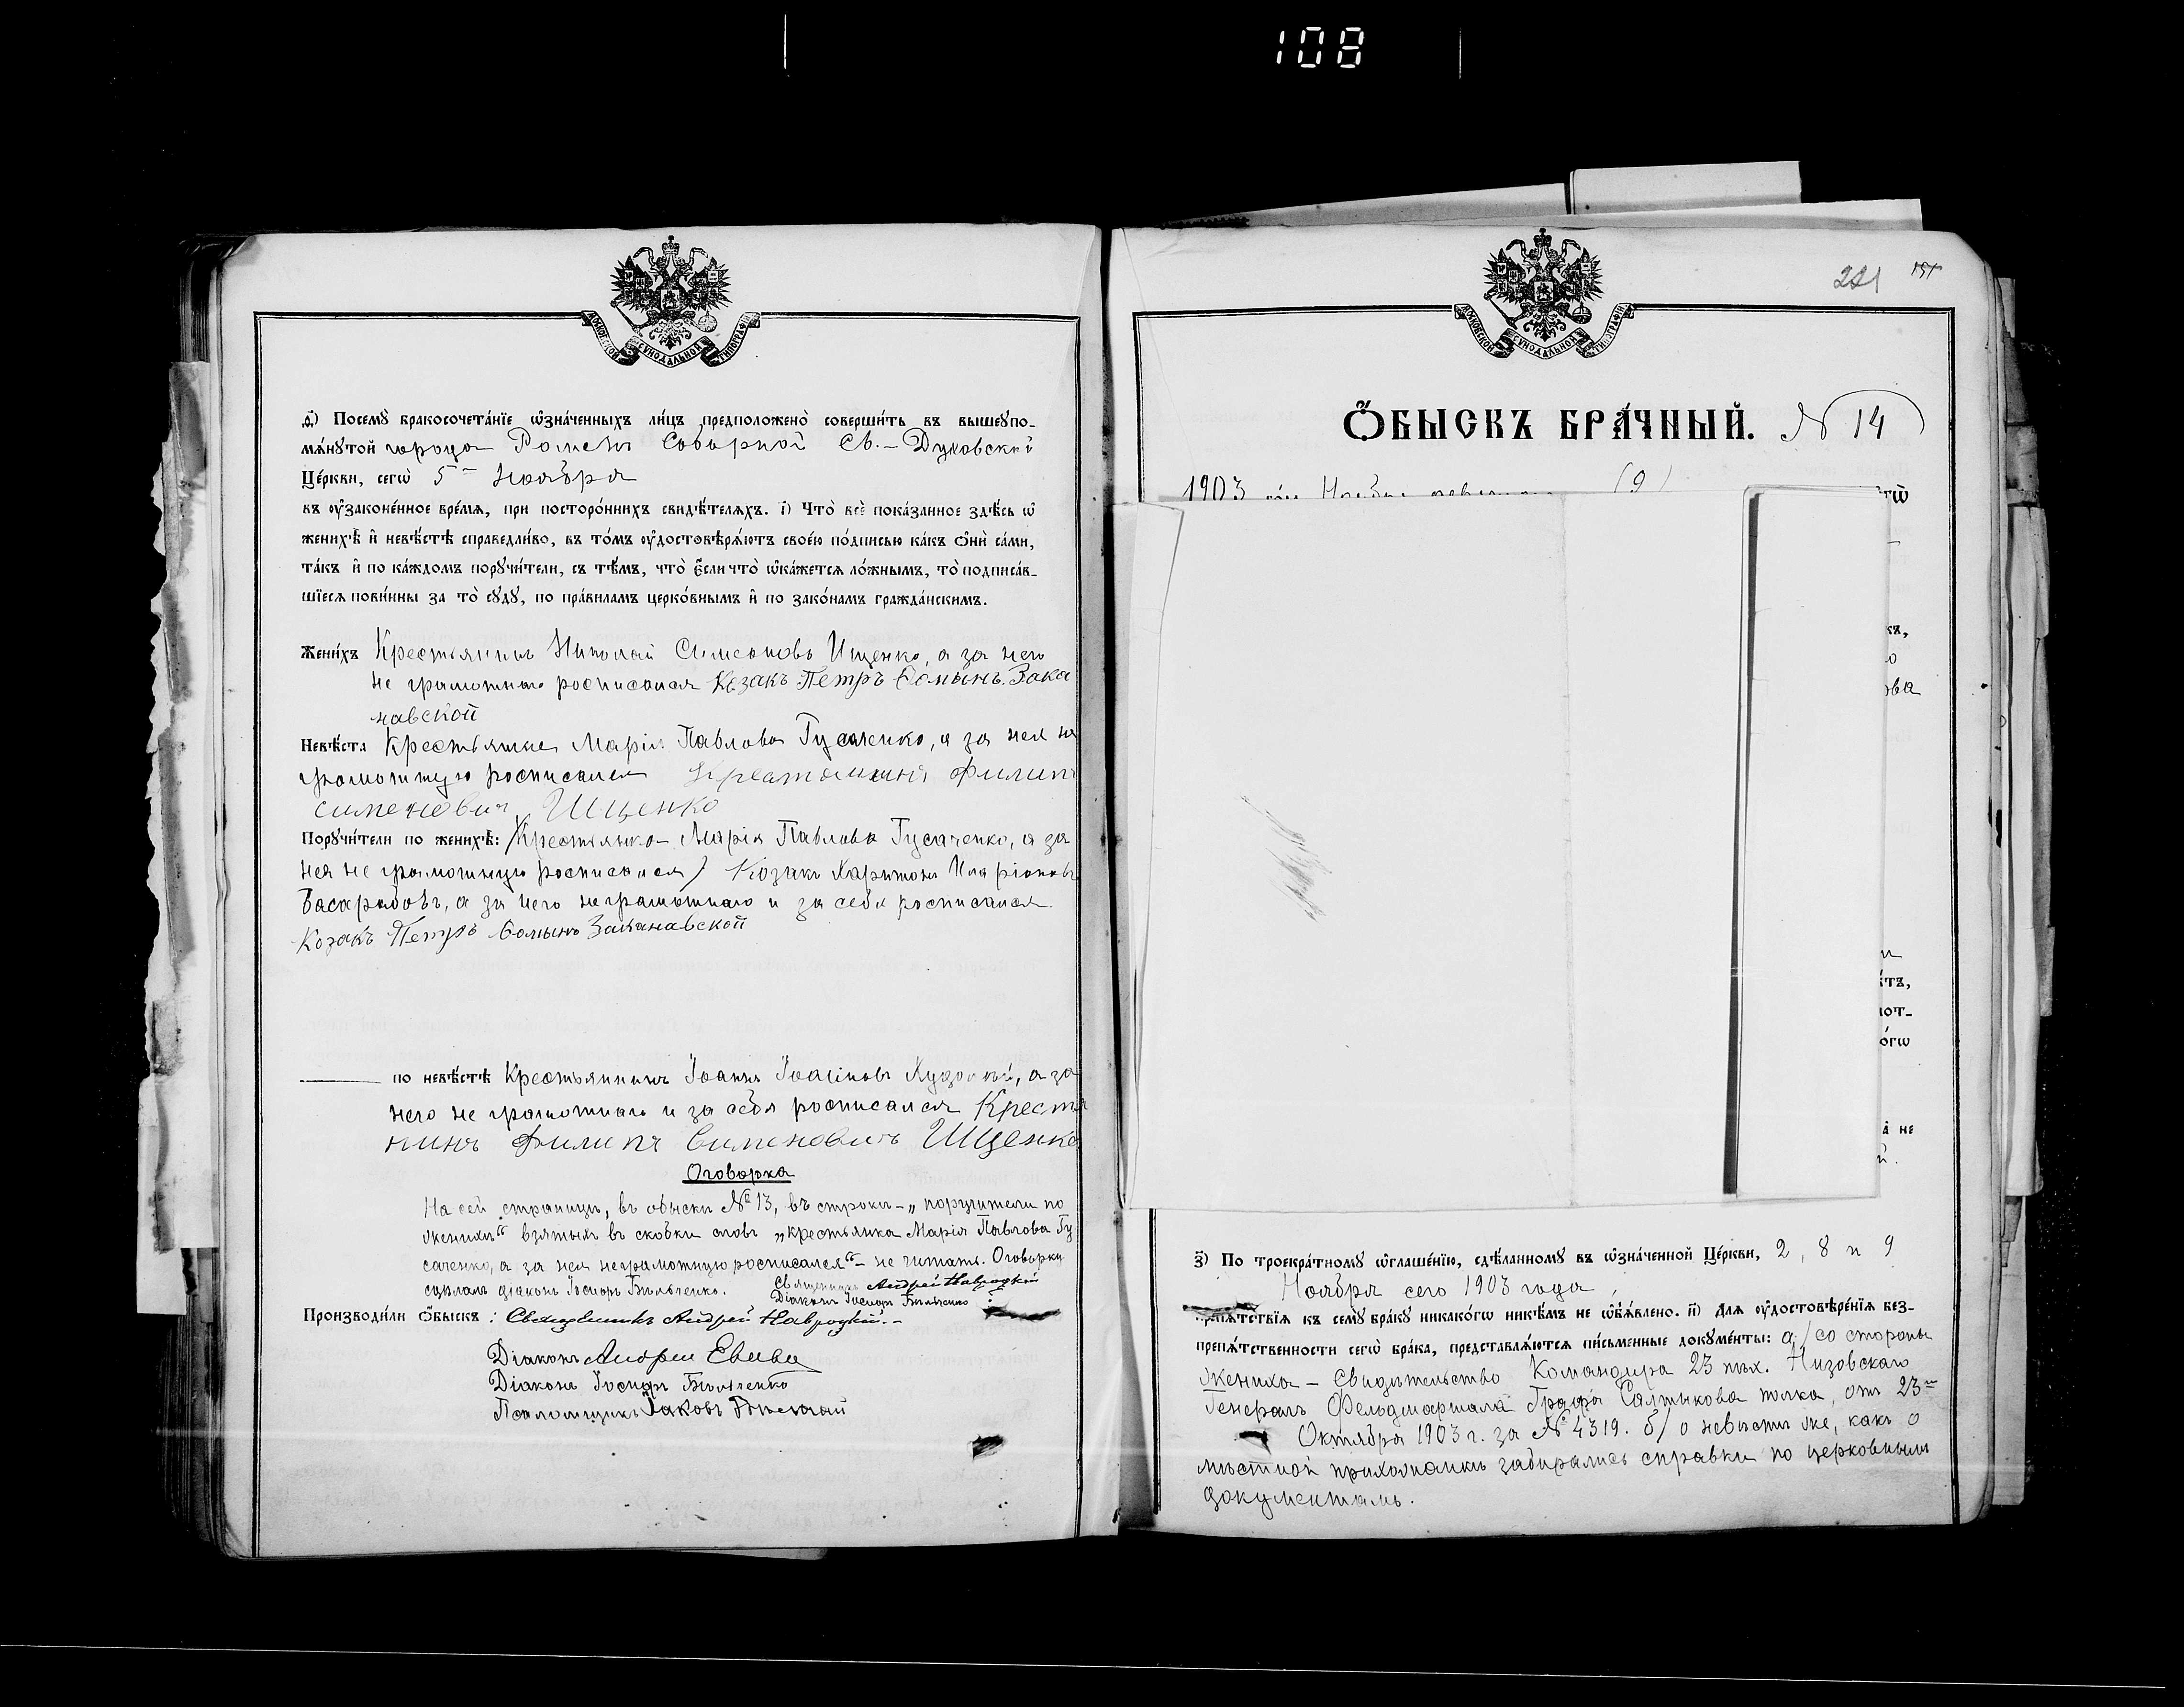 108
МОСКОВСКОЙ СѴНОДАЛЬНОЙ ТИПОГРАФІИ
д҃) Посемꙋ̀ бракосочета́нїе ѡ҆зна́ченныхъ ли́цъ предположено̀ соверши́ть въ вышеꙋпо-
мѧ́нꙋтой города Ромень Соборной Св.-Духовской
Це́ркви, сегѡ̀ 5го Ноября
въ ᲂу҆зако́ненное вре́мѧ, при посторо́ннихъ свидѣ́телѧхъ. і҃) Что̀ всѐ пока́занное здѣ́сь ѡ҆
женихѣ̀ и҆ невѣ́стѣ справедли́во, въ то́мъ ᲂу҆достовѣрѧ́ютъ свое́ю по́дписью ка́къ ѻ҆нѝ са́ми,
та́къ и҆ по ка́ждомъ порꙋчи́тели, съ тѣ́мъ, что̀ є҆́сли что̀ ѡ҆ка́жетсѧ ло́жнымъ, то̀ подписа́в-
шїесѧ пови́нны за то̀ сꙋдꙋ̀, по пра́виламъ церко́внымъ и҆ по зако́намъ гражда́нскимъ.
Жени́хъ Крестьянинъ Николай Симеоновъ Ищенко, а за него
не грамотнаго росписался Козакъ Петръ Фоминъ Зака
навской
Невѣ́ста Крестьянка Марія Павлова Гусаченко, а за нея не
грамотную росписался Крестьянинъ Филипъ
Сименовичъ Ищенко
Порꙋчи́тели по женихѣ̀: (Крестьянка Марія Павлова Гусаченко, а за
нея не грамотную росписался) Козакъ Харитонъ Иларіоновъ
Басарабовъ, а за него неграмотнаго и за себя росписался
Козакъ Петръ Фоминъ Заканавской
по невѣ́стѣ Крестьянинъ Іоаннъ а за
него не грамотнаго и за себя росписался Крестья
нинъ Филипъ Сименовичъ Ищенко
Оговорка
На сей страницѣ, въ обыскѣ № 13, въ строкѣ - „поручители по
женихѣ“ взятыхъ въ скобки словъ „крестьянка Марія Павлова Гу
саченко, а за нея неграмотную росписался“ - не читать. Оговорку
сдѣлалъ діаконъ Іосифъ Бильченко. Священникъ Андрей Навроцкій
Діаконъ Іосифъ Бильченко
Производи́ли ѻ҆́быскъ: Священникъ Андрей Навроцкій.-
Діаконъ Андрей
Діаконъ Іосифъ Бильченко
Псаломщикъ Іаковъ
221 151
МОСКОВСКОЙ СѴНОДАЛЬНОЙ ТИПОГРАФІИ
Ѻ҆́БЫСКЪ БРА́ЧНЫЙ. № 14
1903 го́да Ноября девятаго (9)
гѡ̀
къ,
о
ова
и
тъ,
от-
о́гѡ
не
й.
з҃) По троекра́тномꙋ ѡ҆глаше́нїю, сдѣ́ланномꙋ въ ѡ҆зна́ченной Це́ркви, 2, 8 и 9
Ноября сего 1903 года,
препѧ́тствїѧ къ семꙋ̀ бра́кꙋ никако́гѡ никѣ́мъ не ѡ҆б̾ѧ́влено. и҃) Длѧ ᲂу҆достовѣре́нїѧ без-
препѧ́тственности сегѡ̀ бра́ка, представлѧ́ютсѧ пи́сьменные докꙋме́нты: а) со стороны
жениха - Свидѣтельство Командира 23 пѣх. Низовскаго
Генералъ Фельдмаршала Графа Салтыкова полка, отъ 23го
Октября 1903 г. за № 4319. б) о невѣстѣ же, какъ о
мѣстной прихожанкѣ забирались справки по церковнымъ
документамъ.